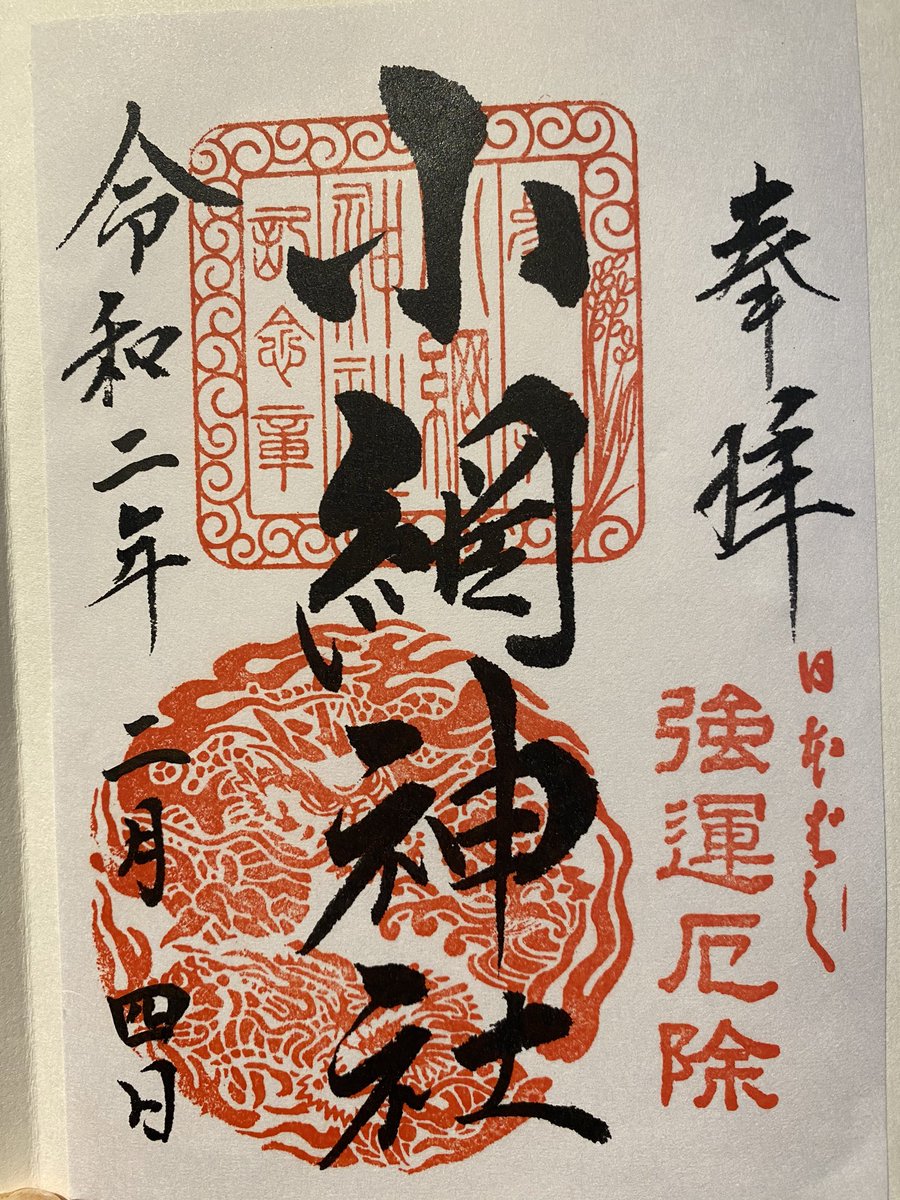 奉拝
日本ばし
強運厄除
小網神社
小網
神社
記念章
令和二年二月四日